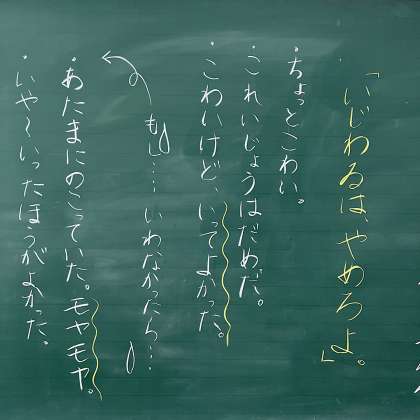 「いじわるは、やめろよ。」
・ちょっとこわい。
・これいじょうはだめだ。
・こわいけど、いってよかった。
もし…いわなかったら…
・あたまにのこっていた。モヤモヤ。
・いや〜いったほうがよかった。